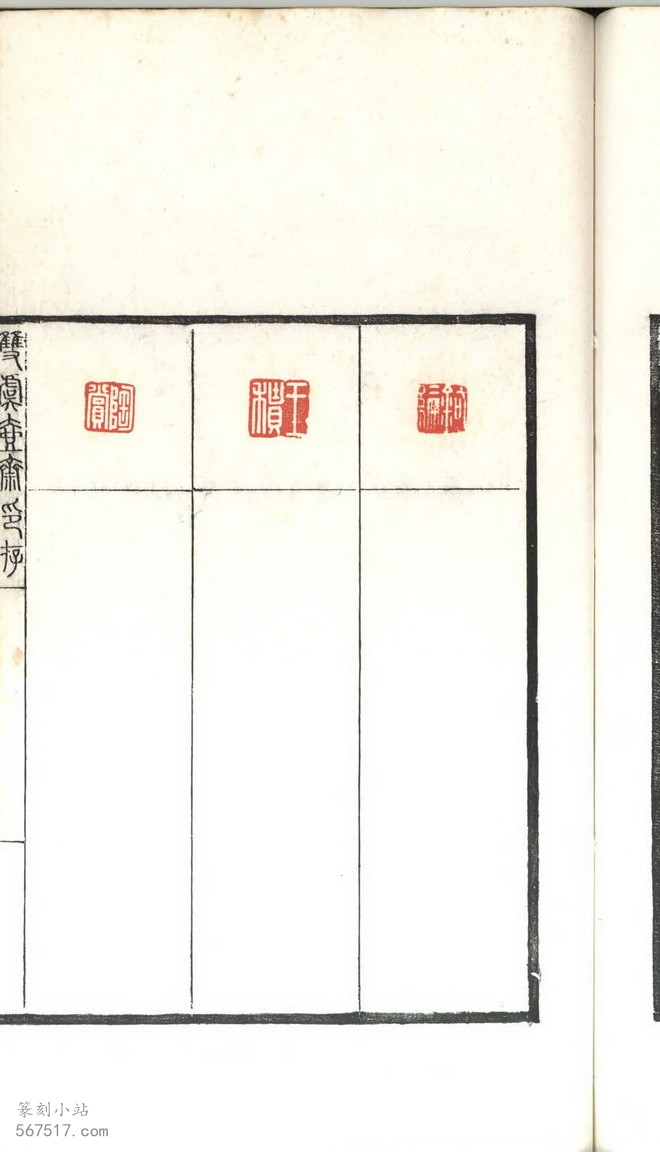 王積
陶賞
雙虞壺齋印存
篆刻小站
567517.com